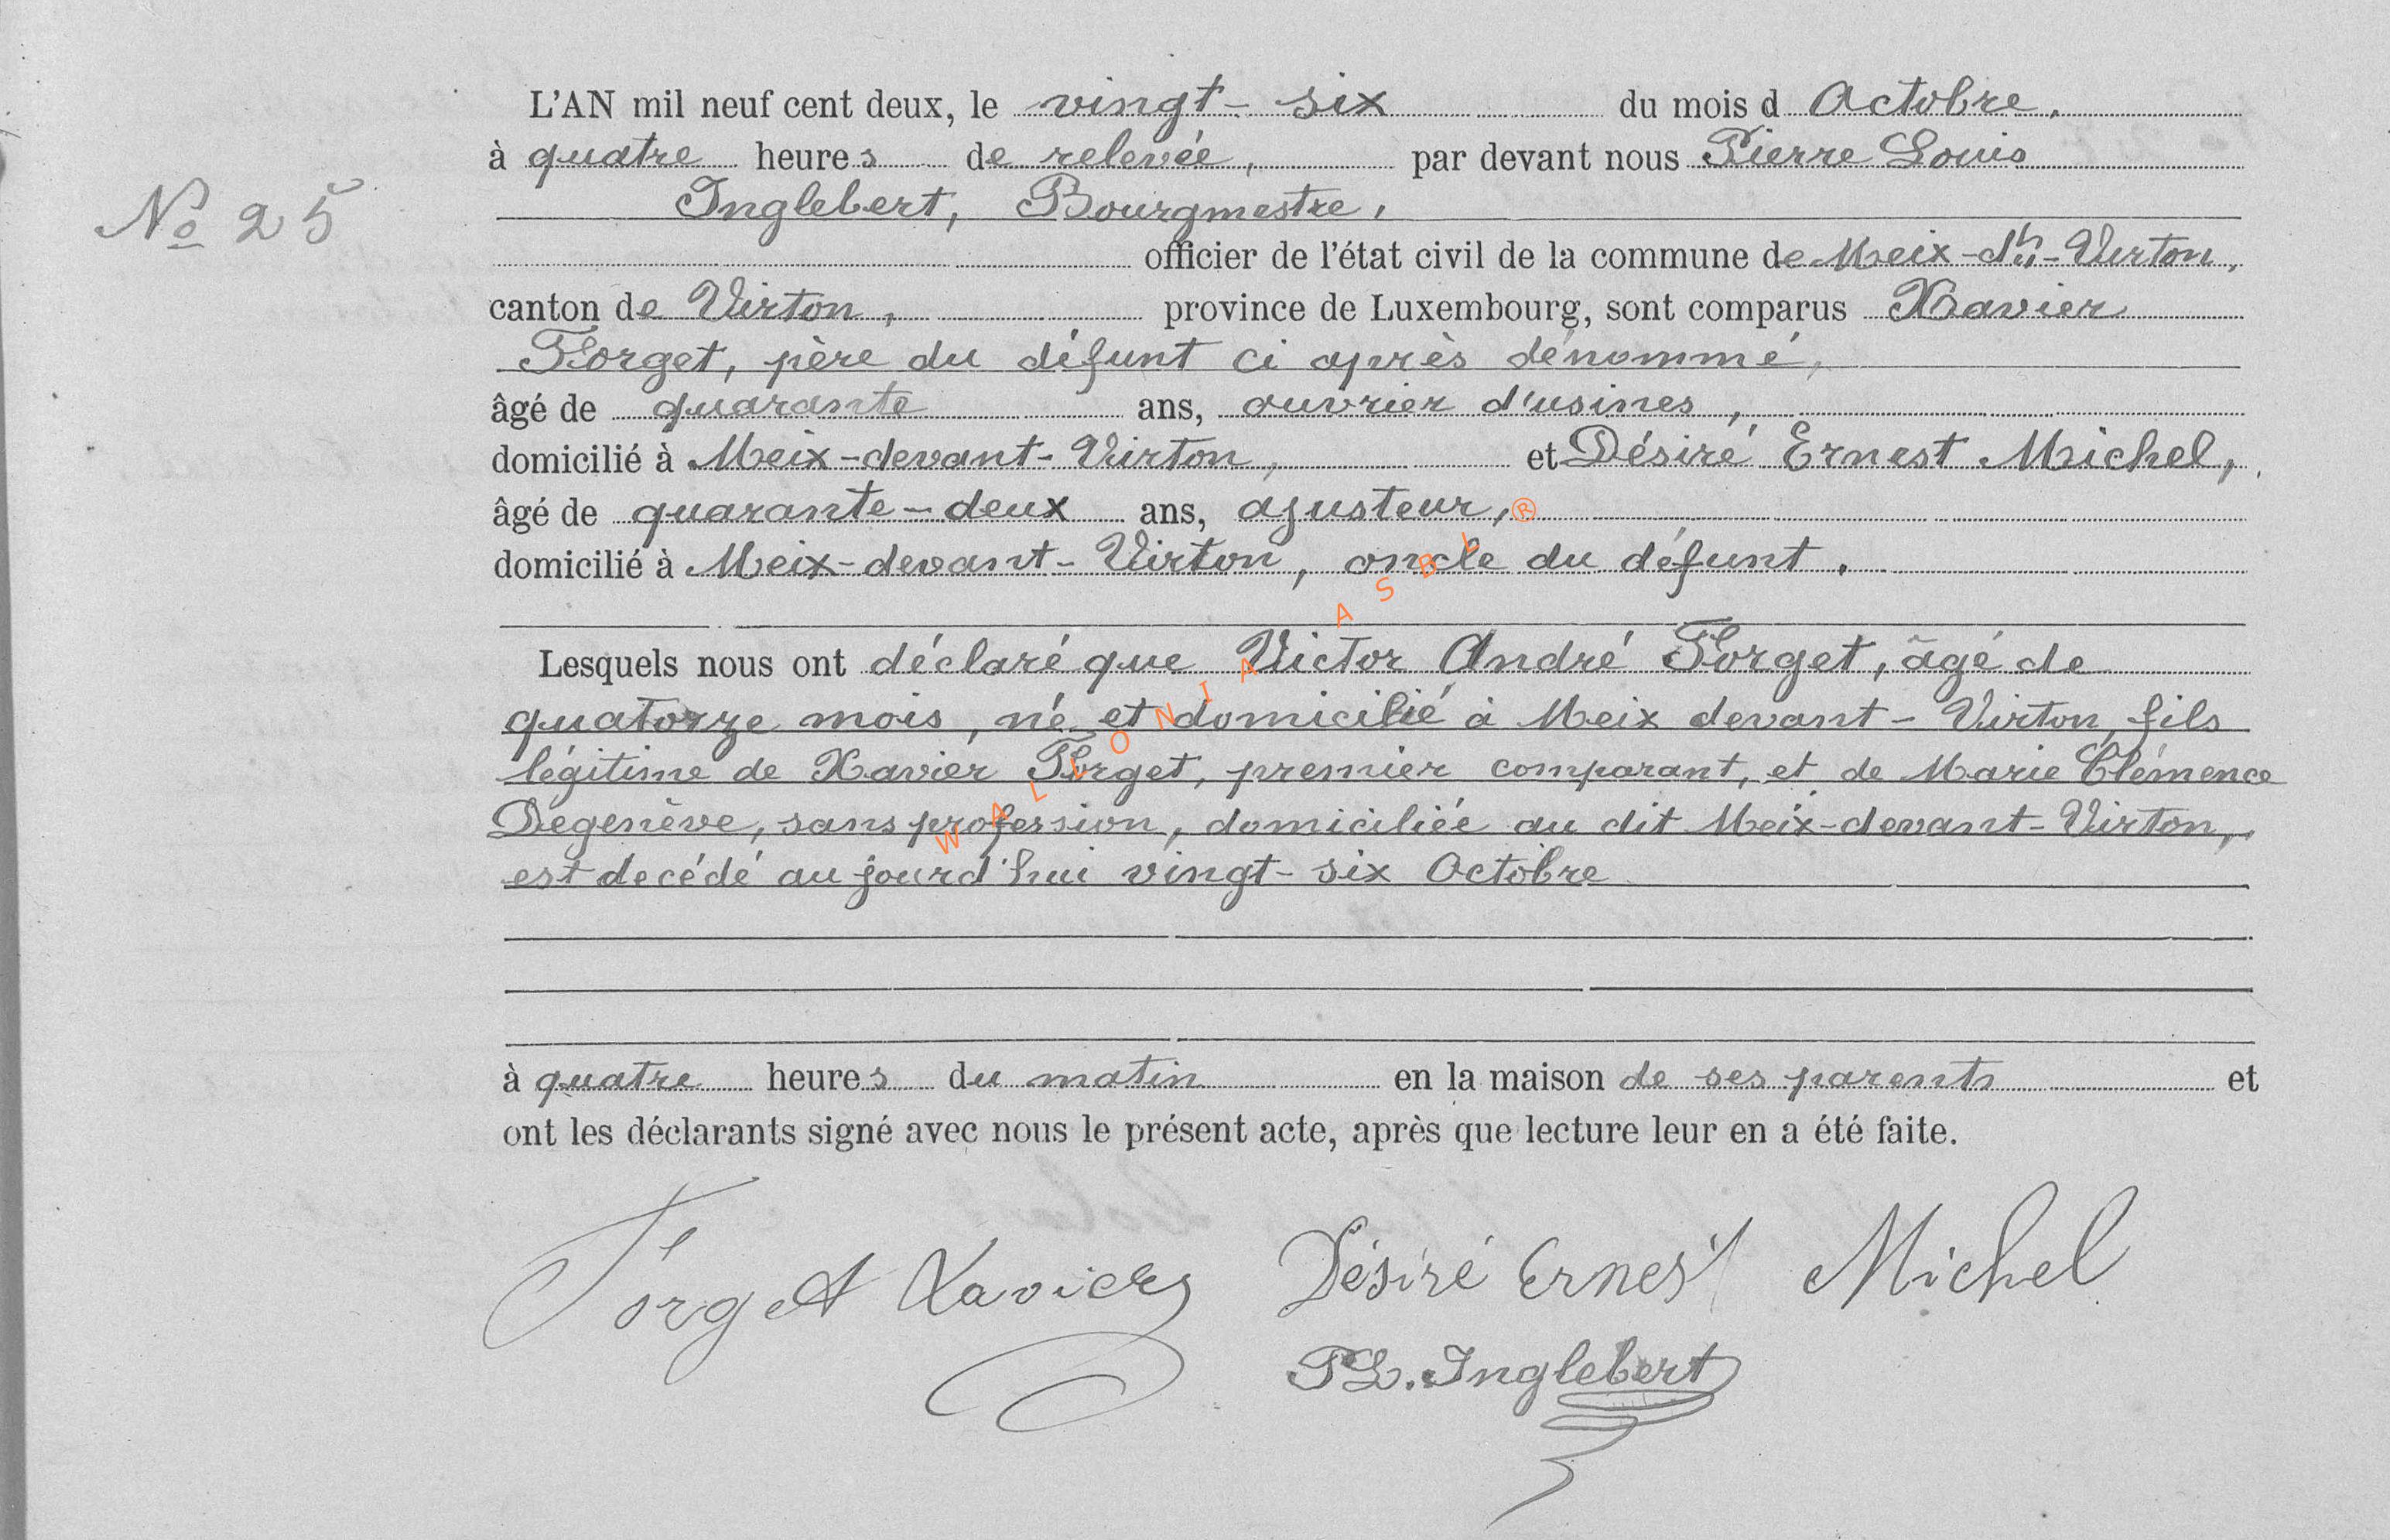 L'AN mil neuf cent deux, le vingt-six du mois d Octobre,
à quatre heures de relevée, par devant nous Pierre Louis
Nº 25
Inglebert, Bourgmestre,
officier de l'état civil de la commune de Meix-dt-Virton,
canton de Virton, province de Luxembourg, sont comparus Xavier
Forget, père du défunt ci après dénommé,
âgé de quarante ans, ouvrier d'usines,
domicilié à Meix-devant-Virton, et Désiré Ernest Michel,
âgé de quarante-deux ans, ajusteur,
domicilié à Meix-devant-Virton, oncle du défunt.
Lesquels nous ont déclaré que Victor André Forget, âgé de
quatorze mois, né et domicilié à Meix devant-Virton, fils
légitime de Xavier Forget, premier comparant, et de Marie Clémence
Degenève, sans profession, domiciliée au dit Meix-devant-Virton,
est decédé aujourd'hui vingt-six Octobre
à quatre heures du matin en la maison de ses parents et
ont les déclarants signé avec nous le présent acte, après que lecture leur en a été faite.
Forget Xavier Désiré Ernest Michel
PL. Inglebert
WALLONIA ASBL ®